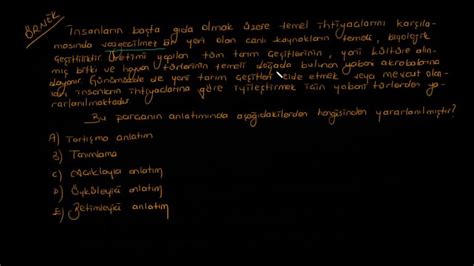 ÖRNEK
İnsanların başta gıda olmak üzere temel ihtiyaçlarını karşıla-
masında vazgeçilmez bir yeri olan canlı kaynakların temeli, biyolojik
çeşitliliktir. Üretimi yapılan tüm tarım çeşitlerinin, yani kültüre alın-
mış bitki ve hayvan türlerinin temeli doğada bulunan yabani akrabalarına
dayanır. Günümüzde de yeni tarım çeşitleri elde etmek veya mevcut ola-
ları insanların ihtiyaçlarına göre iyileştirmek için yabani türlerden ya-
rarlanılmaktadır.
Bu parçanın anlatımında aşağıdakilerden hangisinden yararlanılmıştır?
A) Tartışma anlatım
B) Tanımlama
C) Açıklayıcı anlatım
D) Öyküleyici anlatım
E) Betimleyici anlatım